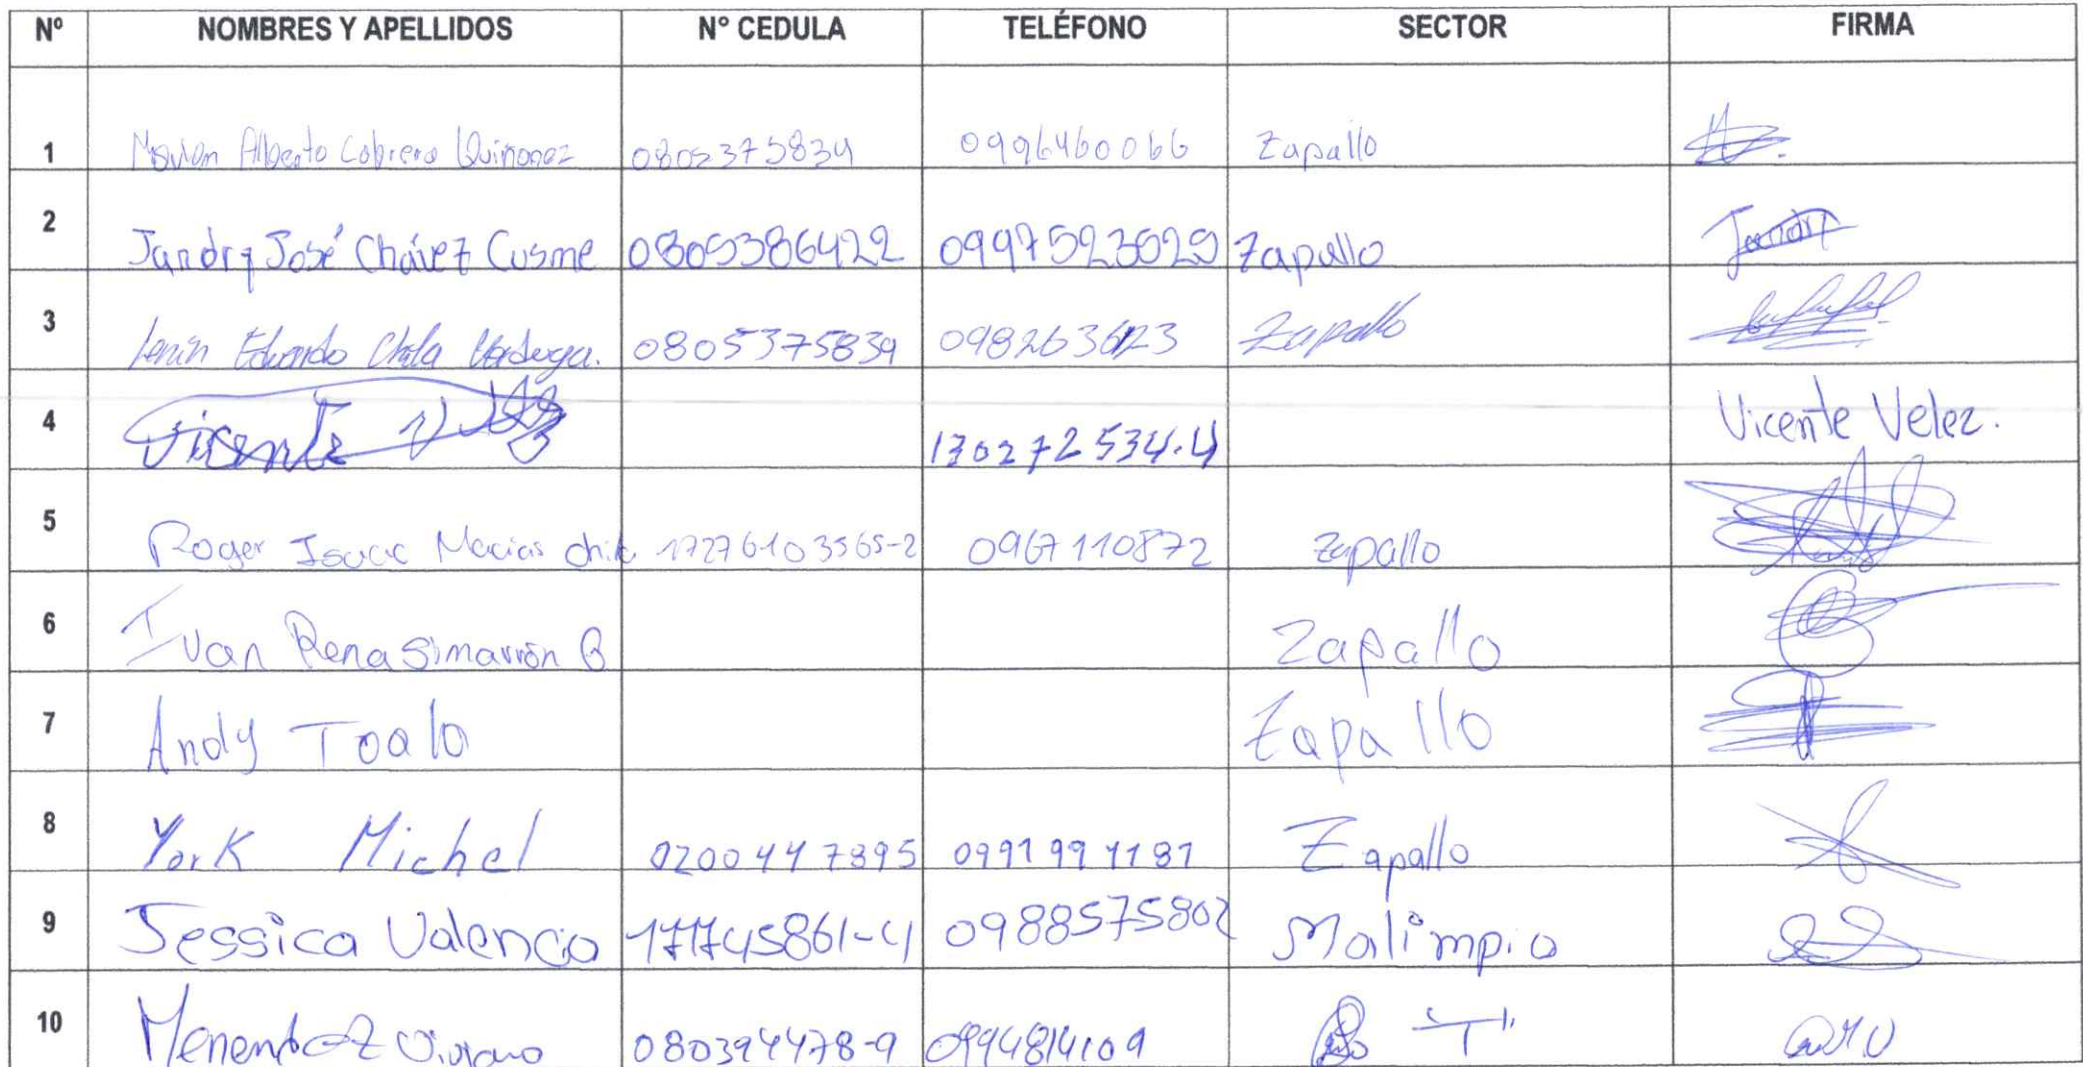 Nº NOMBRES Y APELLIDOS Nº CEDULA TELÉFONO SECTOR FIRMA
1 Alberto Quiñonez 0996460066 Zapallo
2 Jandry José Chávez Cusme 0805386422 0997523029 Zapallo Jandry
3 Lenin Eduardo Chila 0805375839 Zapallo
4 Vicente 130272534-4 Vicente Velez.
5 Roger Isaac Macias 17276103565-2 0967110872 Zapallo
6 Ivan Rena Simarrón B Zapallo
7 Andy Toalo Zapallo
8 York Michel 0200447895 0991991181 Zapallo
9 Jessica Valencia 171745861-4 0988575802 Malimpia
10 080394478-9 0994814109